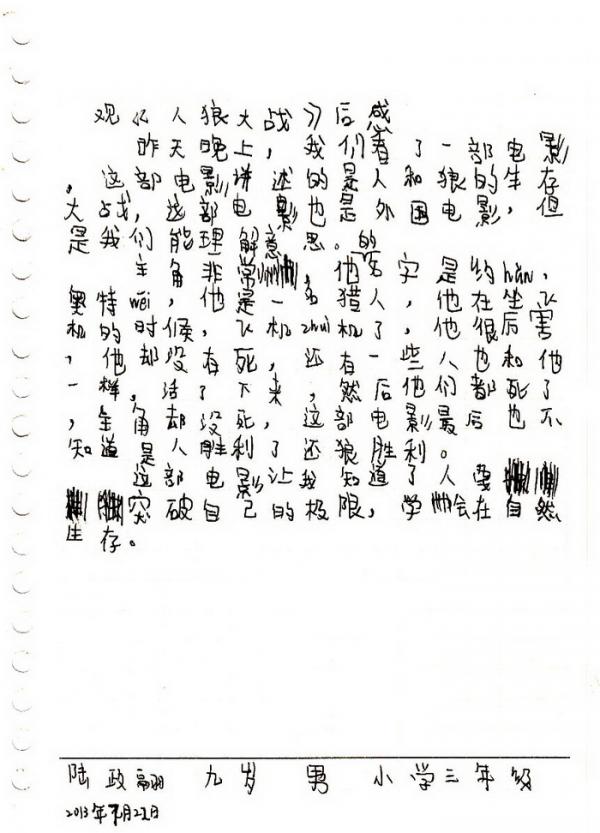 观《人狼大战》后感
昨天晚上,我们看了一部电影
,这部电影讲述的是人和狼的生存
大战,这部电影也是外国电影,但
是我们能理解意思。
主角非常,他的名字是约hàn、
奥特wéi,他是一名猎人,他在坐飞
机的时候,飞机zhuì机了,很害
,他却没有死,还有一些人也和他
一样,活了下来,然后他们都死了
,主角却没死,这部电影最后也不
知道是人胜利了还狼胜利。
这部电影让我知道了人要
突破自己的极限,学会在自然
生存。
陆政 九岁 男 小学三年级
2013年7月22日